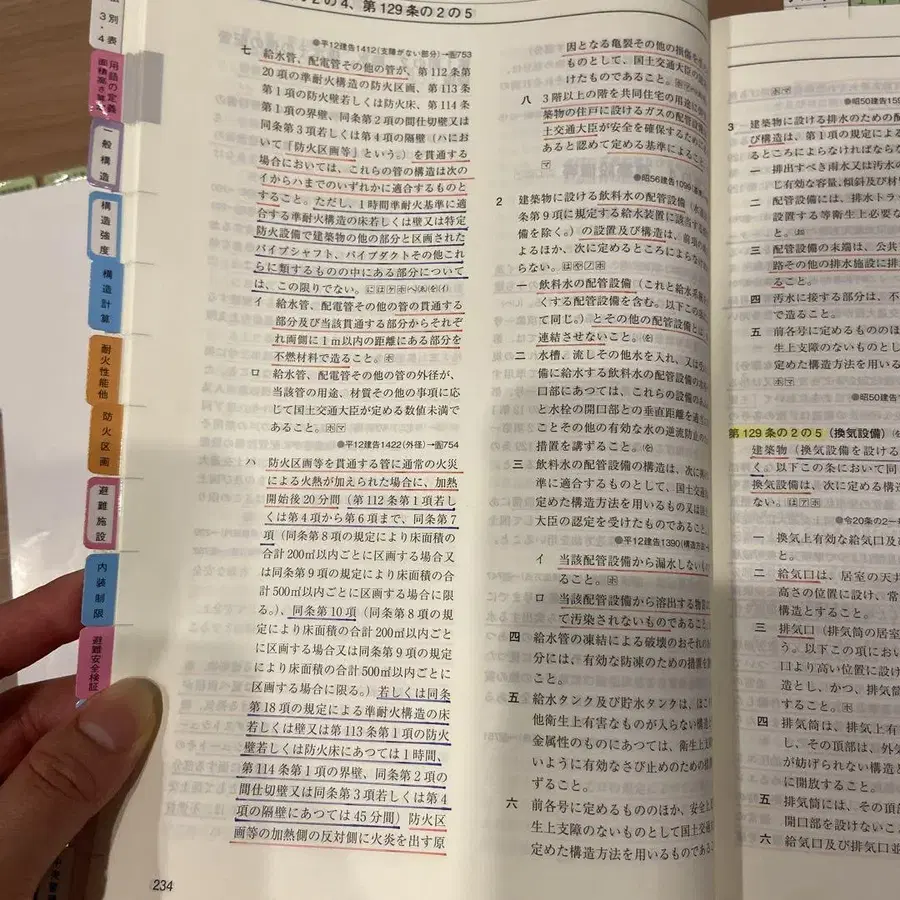 の2の4、第129条の2の5
別表
3・4
用語の定義
面積高さ算定
一般構造
構造強度
構造計算
耐火性能他
防火区画
避難施設
内装制限
避難安全検証
●平12建告1412(支障がない部分)→圖753
七 給水管、配電管その他の管が、第112条第
20項の準耐火構造の防火区画、第113条
第1項の防火壁若しくは防火床、第114条
第1項の界壁、同条第2項の間仕切壁又は
同条第3項若しくは第4項の隔壁(ハにお
いて「防火区画等」という。)を貫通する
場合においては、これらの管の構造は次の
イからハまでのいずれかに適合するものと
すること。ただし、1時間準耐火基準に適
合する準耐火構造の床若しくは壁又は特定
防火設備で建築物の他の部分と区画された
パイプシャフト、パイプダクトその他これ
らに類するものの中にある部分について
は、この限りでない。
イ 給水管、配電管その他の管の貫通する
部分及び当該貫通する部分からそれぞ
れ両側に1m以内の距離にある部分を
不燃材料で造ること。
ロ 給水管、配電管その他の管の外径が、
当該管の用途、材質その他の事項に応
じて国土交通大臣が定める数値未満で
あること。
●平12建告1422(外径)→圖754
ハ 防火区画等を貫通する管に通常の火災
による火熱が加えられた場合に、加熱
開始後20分間(第112条第1項若し
くは第4項から第6項まで、同条第7
項(同条第8項の規定により床面積の
合計200㎡以内ごとに区画する場合又
は同条第9項の規定により床面積の合
計500㎡以内ごとに区画する場合に限
る。)、同条第10項(同条第8項の規
定により床面積の合計200㎡以内ごと
に区画する場合又は同条第9項の規定
により床面積の合計500㎡以内ごとに
区画する場合に限る。)若しくは同条
第18項の規定による準耐火構造の床
若しくは壁又は第113条第1項の防火
壁若しくは防火床にあつては1時間、
第114条第1項の界壁、同条第2項の
間仕切壁又は同条第3項若しくは第4
項の隔壁にあつては45分間)防火区
画等の加熱側の反対側に火炎を出す原
234
因となる亀裂その他の損傷を
ものとして、国土交通大臣の
けたものであること。
八 3階以上の階を共同住宅の用途に
築物の住戸に設けるガスの配管設
土交通大臣が安全を確保するために
あると認めて定める基準によること
●昭56建告1099
2 建築物に設ける飲料水の配管設備(水
条第9項に規定する給水装置に該当する
備を除く。)の設置及び構造は、前項の
よるほか、次に定めるところによらなけ
らない。
一 飲料水の配管設備(これと給水系統
くする配管設備を含む。以下この
て同じ。)とその他の配管設備とは
連結させないこと。
二 水槽、流しその他水を入れ、又は
備に給水する飲料水の配管設備の
口部にあつては、これらの設備の
と水栓の開口部との垂直距離を適
ことその他の有効な水の逆流防止の
措置を講ずること。
三 飲料水の配管設備の構造は、次に
準に適合するものとして、国土交通
定めた構造方法を用いるもの又は国
大臣の認定を受けたものであること
●平12建告1390(構造方法
イ 当該配管設備から漏水しないもの
ること。
ロ 当該配管設備から溶出する物質
て汚染されないものであること
四 給水管の凍結による破壊のおそれの
分には、有効な防凍のための措置を
こと。
五 給水タンク及び貯水タンクは、ほこ
他衛生上有害なものが入らない構造
金属性のものにあつては、衛生上支
いように有効なさび止めのための措
ずること。
六 前各号に定めるもののほか、安全上
生上支障のないものとして国土交通
定めた構造方法を用いるものである
●昭50建告
3 建築物に設ける排水のための配
び構造は、第1項の規定による
るところによらなければならな
一 排出すべき雨水又は汚水の
じ有効な容量、傾斜及び材
二 配管設備には、排水トラ
設置する等衛生上必要な
と。
三 配管設備の末端は、公共
路その他の排水施設に排
ること。
四 汚水に接する部分は、不
で造ること。
五 前各号に定めるもののほ
生上支障のないものとして
定めた構造方法を用いる
●昭50建告
第129条の2の5(換気設備)
建築物(換気設備を設ける
く。以下この条において同
換気設備は、次に定める構造
ない。
●令20条の2一
一 換気上有効な給気口及び
と。
二 給気口は、居室の天井
高さの位置に設け、常
構造とすること。
三 排気口(排気筒の居室
う。以下この項におい
口より高い位置に設け
造とし、かつ、排気筒
すること。
四 排気筒は、排気上有
し、その頂部は、外気
が妨げられない構造と
に開放すること。
五 排気筒には、その頂部
開口部を設けないこと
六 給気口及び排気口並